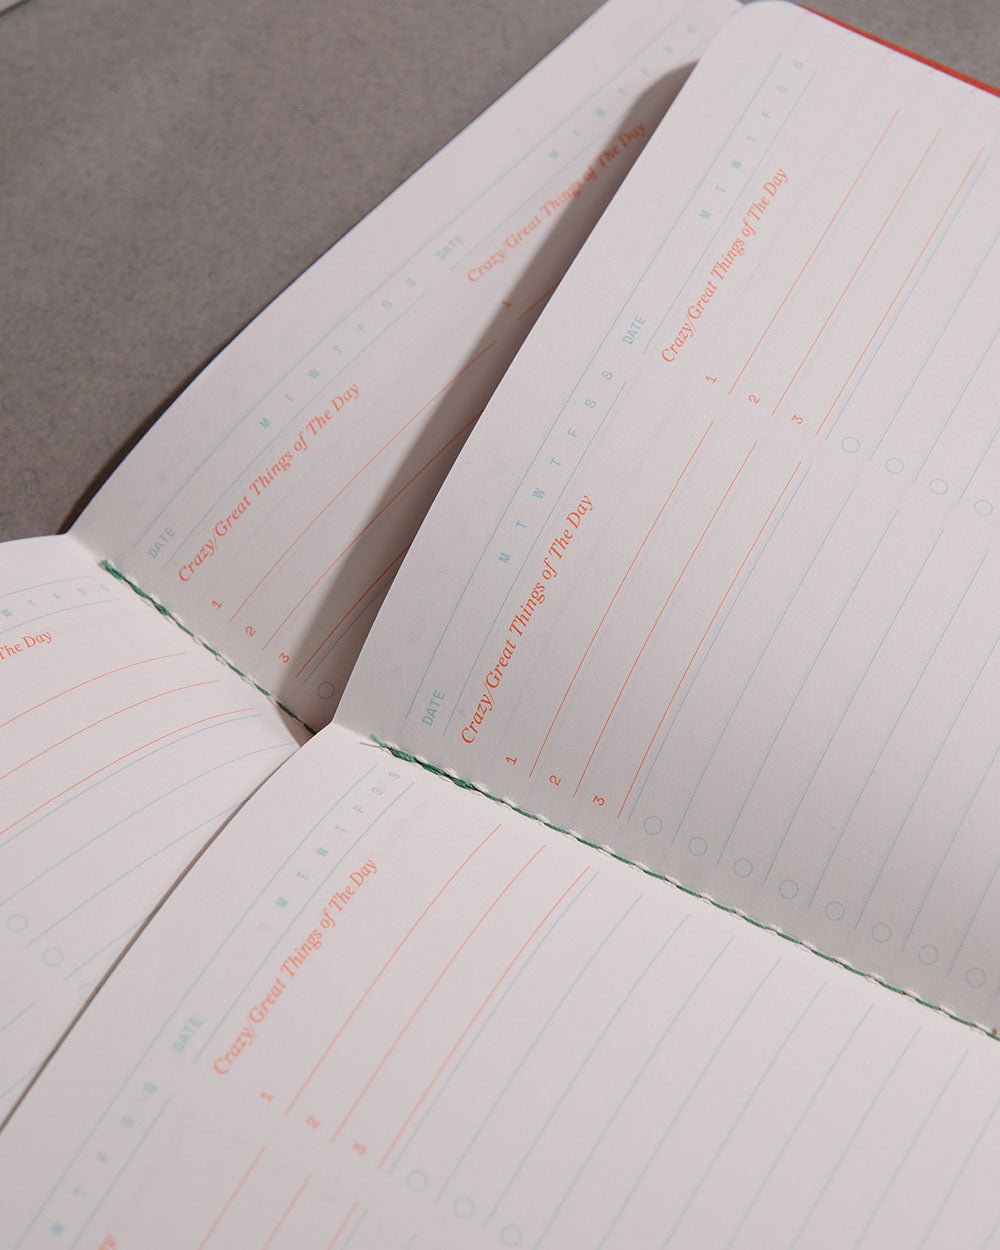 DATE M T W T F S S
Crazy/Great Things of The Day
1
2
3
DATE M T W T F
Crazy/Great Things of The Day
1
DATE M T W T F S S
Crazy/Great Things of The Day
1
2
3
DATE M T W T F S S
Crazy/Great Things of The Day
1
2
3
W T F S S
The Day
DATE M T W T F S S
Crazy/Great Things of The Day
1
2
3
M T W T F S S